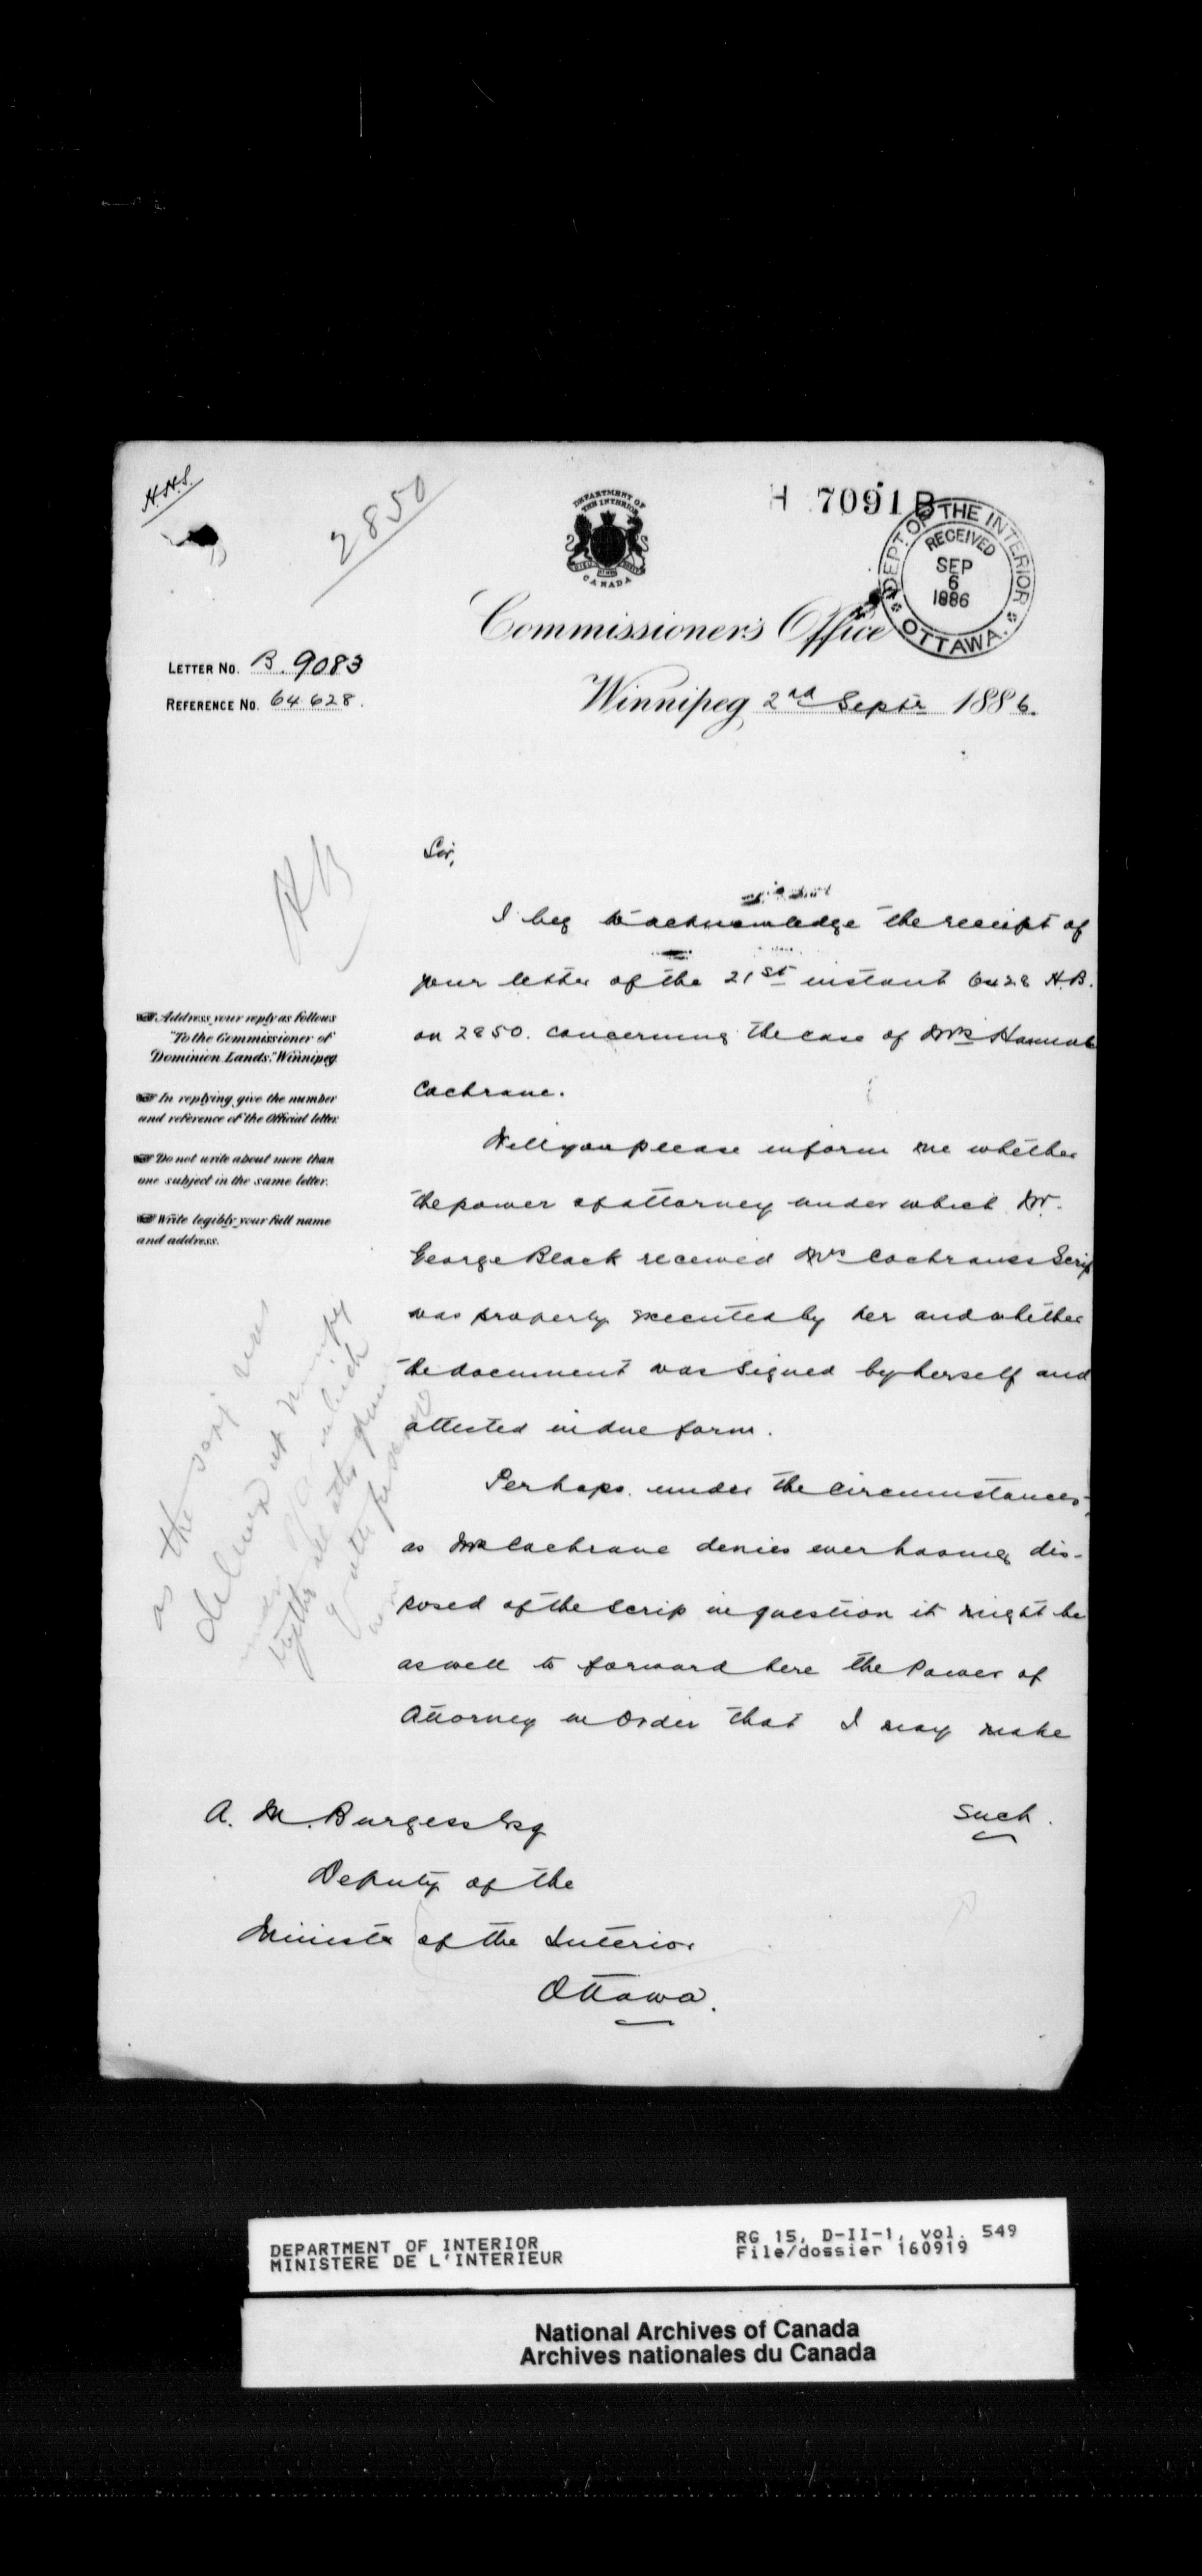 H.H.S.
2850
DEPARTMENT OF
THE INTERIOR
CANADA
H 7091 B
DEPT. OF THE INTERIOR
RECEIVED
SEP
6
1886
OTTAWA.
Commissioner's Office
LETTER NO. B. 9083
REFERENCE NO. 64628.
Winnipeg, 2nd Septr 1886.
HB
Sir,
I beg to acknowledge the receipt of
your letter of the 21st instant 6428 H.B.
on 2850. concerning the case of Mrs Hannah
Cochrane.
Will you please inform me whether
the power of attorney under which Mr.
George Black received Mrs Cochranes Scrip
was properly executed by her and whether
the document was signed by herself and
attested in due form.
Perhaps under the circumstances,
as Mrs Cochrane denies ever having dis-
posed of the Scrip in question it might be
as well to forward here the Power of
Attorney in order that I may make
such.
Address your reply as follows
"To the Commissioner of
Dominion Lands," Winnipeg
In replying give the number
and reference of the Official letter.
Do not write about more than
one subject in the same letter.
Write legibly your full name
and address.
as the scrip was
delivered at Winnipeg
under which
A. M. Burgess Esq
Deputy of the
Minister of the Interior
Ottawa.
DEPARTMENT OF INTERIOR
MINISTERE DE L'INTERIEUR
RG 15, D-II-1, vol. 549
File/dossier 160919
National Archives of Canada
Archives nationales du Canada